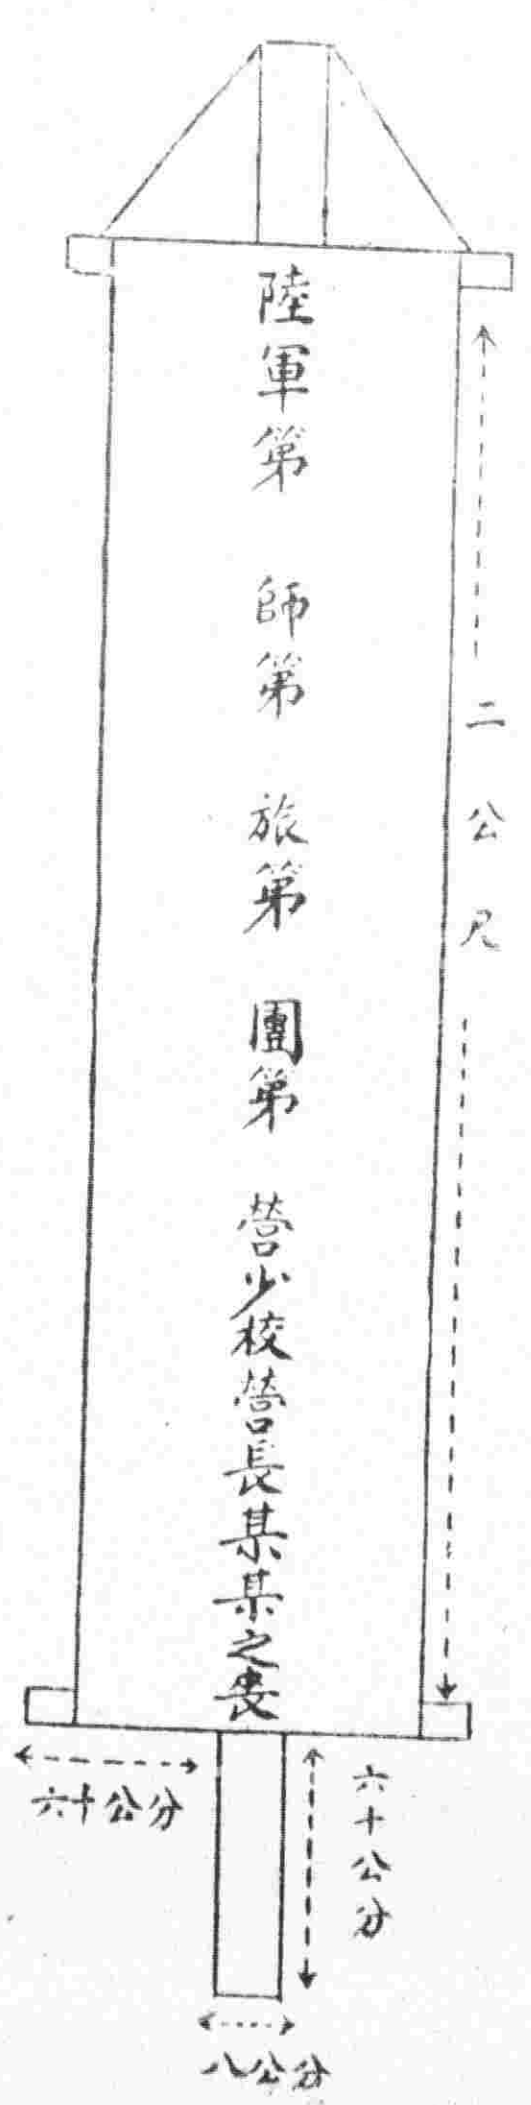 陸軍第　師第　旅第　團第　營少校營長某某之喪
二公尺
六十公分
六十公分
八公分